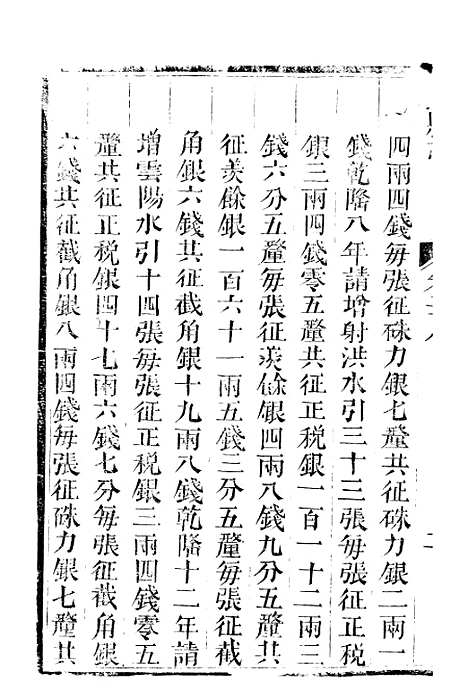 四兩四錢每張征硃力銀七釐共征硃力銀二兩一
錢乾隆八年請增射洪水引三十三張每張征正税
銀三兩四錢零五釐共征正税銀一百一十二兩三
錢六分五釐每張征羡餘銀四兩八錢九分五釐共
征羡餘銀一百六十一兩五錢三分五釐每張征截
角銀六錢共征截角銀十九兩八錢乾隆十二年請
增雲陽水引十四張每張征正税銀三兩四錢零五
釐共征正税銀四十七兩六錢七分每張征截角銀
六錢共征截角銀八兩四錢每張征硃力銀七釐共